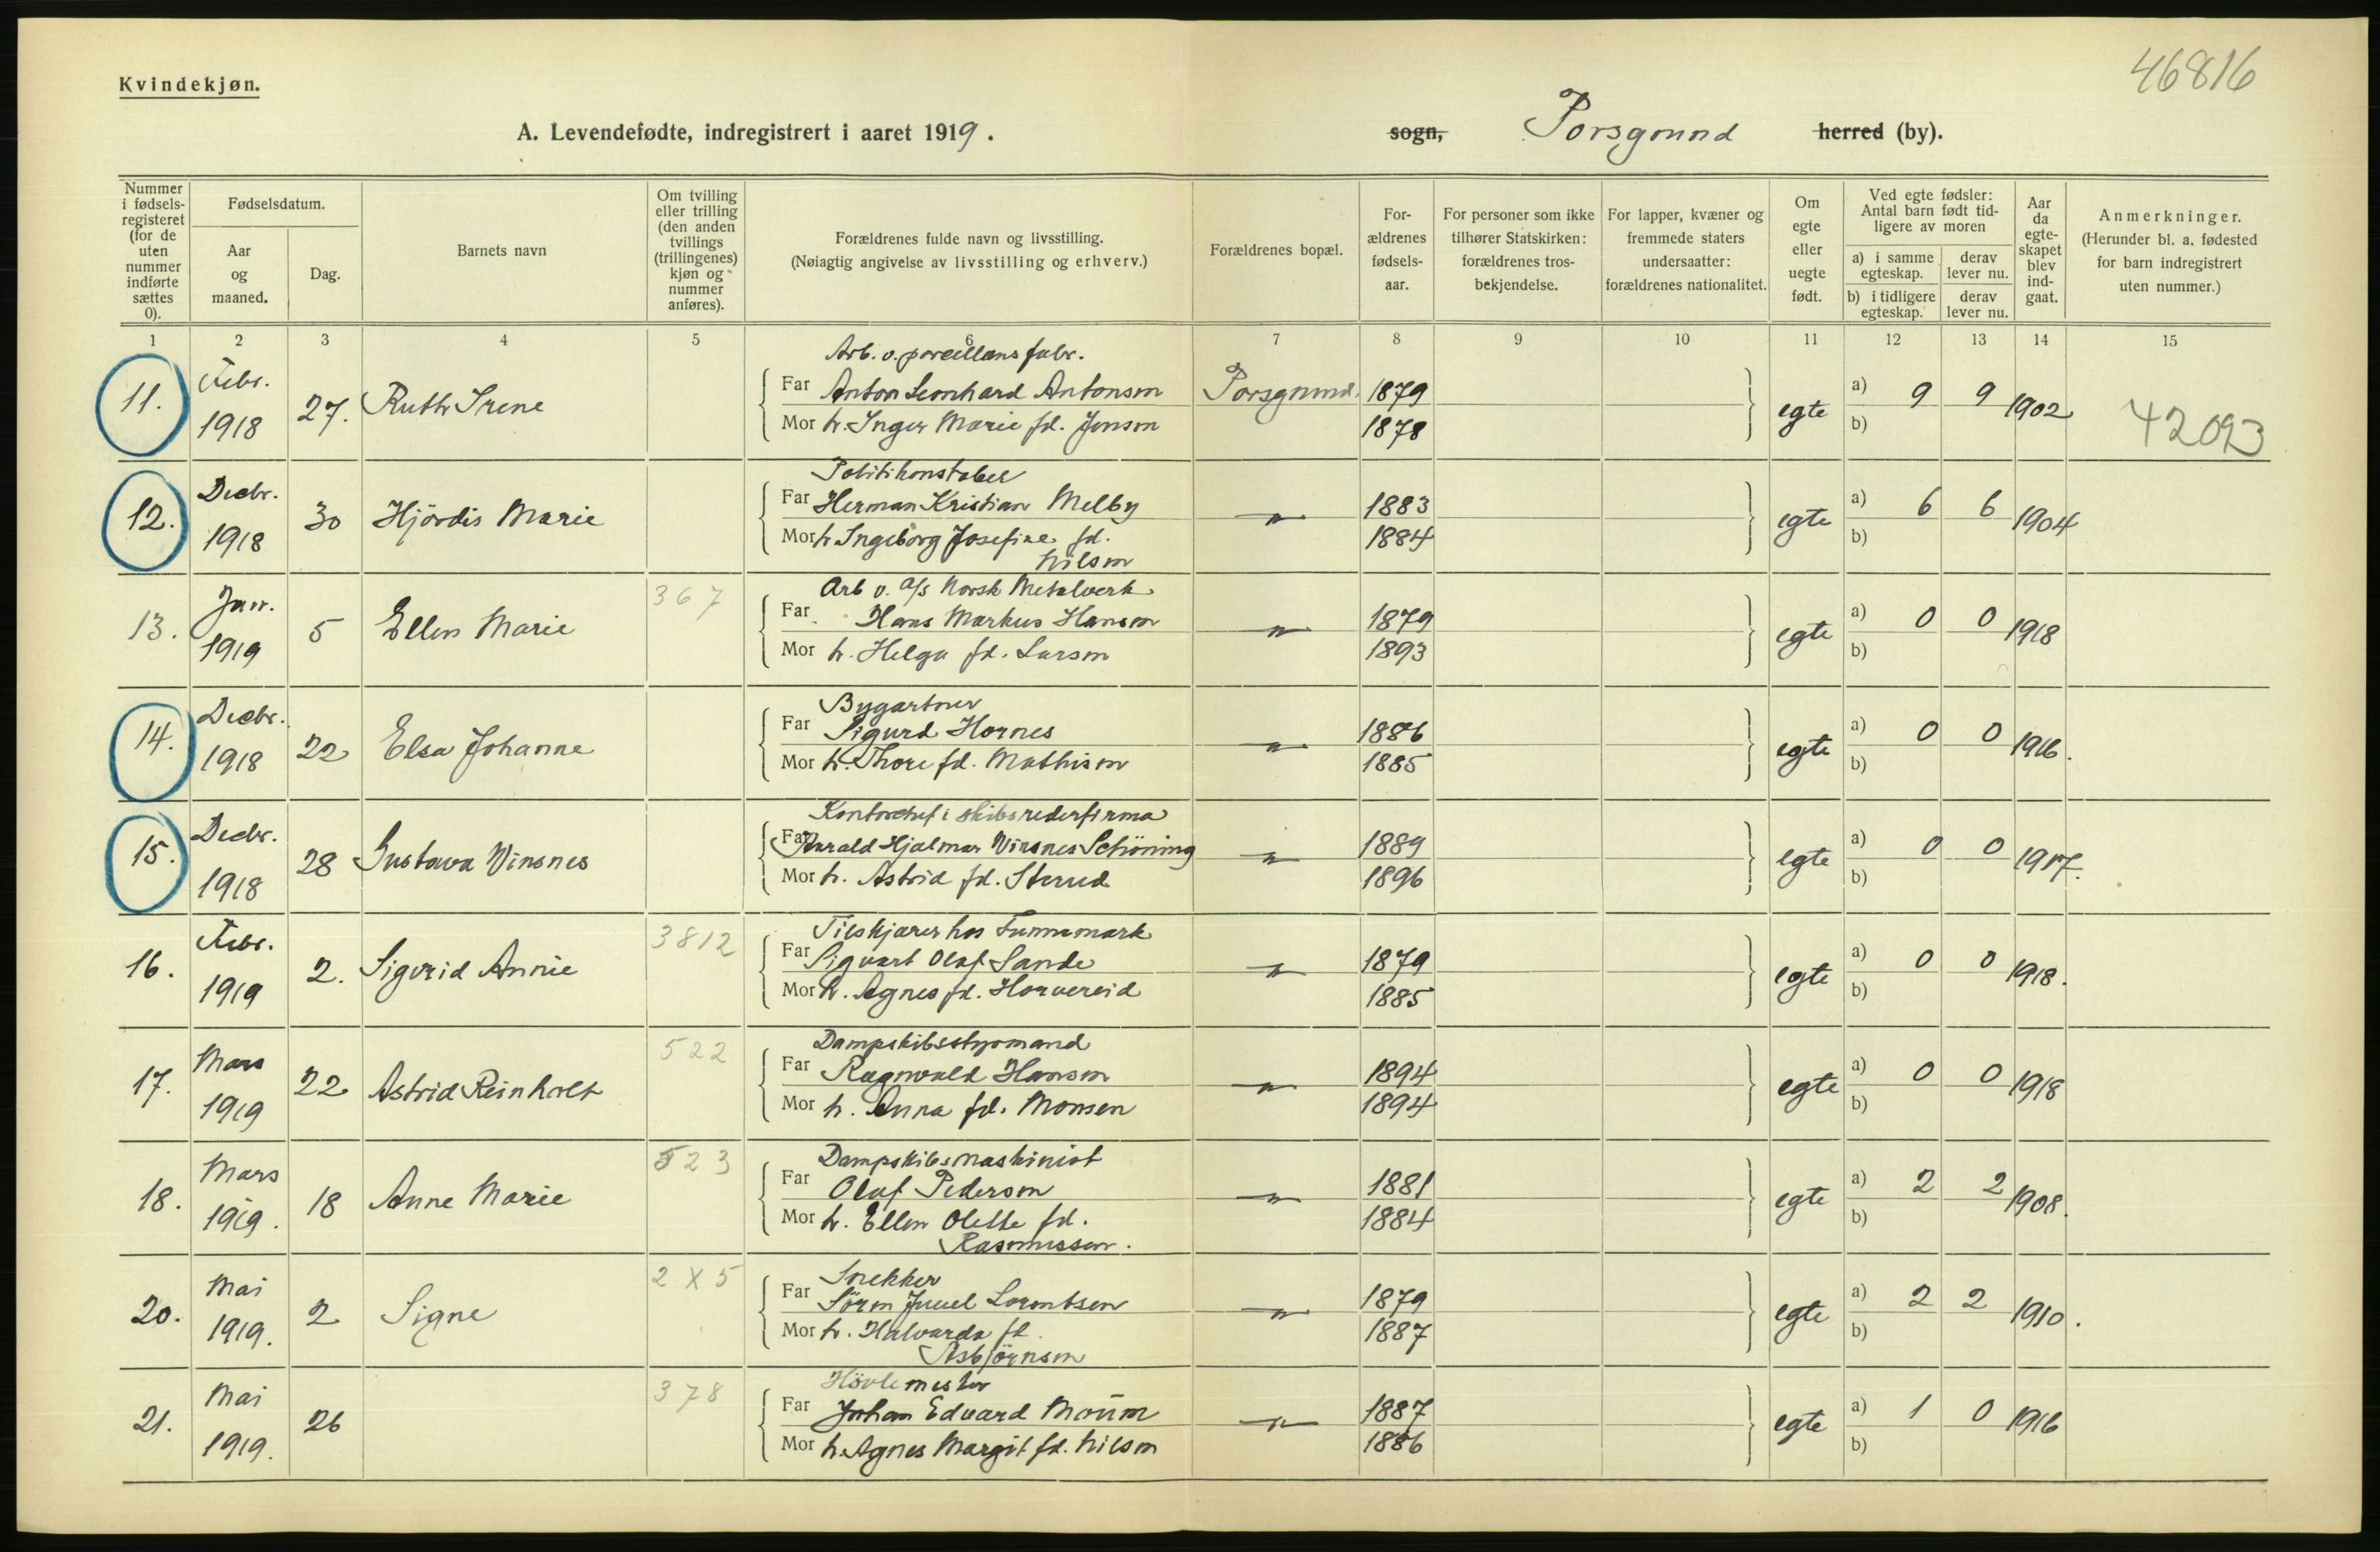 46816
Kvindekjøn.
A. Levendefødte, indregistrert i aaret 1919.
sogn, Porsgrund herred (by).
Nummer i fødselsregisteret (for de uten nummer indførte sættes 0).
Fødselsdatum.
Aar og maaned.
Dag.
Barnets navn
Om tvilling eller trilling (den anden tvillings (trillingenes) kjøn og nummer anføres).
Forældrenes fulde navn og livsstilling.
(Nøiagtig angivelse av livsstilling og erhverv.)
Forældrenes bopæl.
Forældrenes fødselsaar.
For personer som ikke tilhører Statskirken: forældrenes trosbekjendelse.
For lapper, kvæner og fremmede staters undersaatter: forældrenes nationalitet.
Om egte eller uegte født.
Ved egte fødsler: Antal barn født tidligere av moren
a) i samme egteskap.
derav lever nu.
b) i tidligere egteskap.
derav lever nu.
Aar da egteskapet blev indgaat.
Anmerkninger.
(Herunder bl. a. fødested for barn indregistrert uten nummer.)
1 2 3 4 5 6 7 8 9 10 11 12 13 14 15
Arb. v. porcellænsfabr.
11. Febr. 1918 27. Ruth Irene
Far Anton Leonhard Antonsen Porsgrund. 1879
Mor h. Inger Marie fd. Jensen 1878
egte a) 9 9 b) 1902 42093
Politikonstabel
12. Decbr. 1918 30 Hjördis Marie
Far Herman Kristian Melby " 1883
Mor h. Ingeborg Josefine fd. Nilsen 1884
egte a) 6 6 b) 1904
367
Arb v. A/S Norsk Metalverk
13. Jan. 1919 5 Ellen Marie
Far Hans Markus Hansen " 1879
Mor h. Helga fd. Larsen 1893
egte a) 0 0 b) 1918
Bygartner
14. Decbr. 1918 22 Elsa Johanne
Far Sigurd Hornes " 1886
Mor h. Thore fd. Mathisen 1885
egte a) 0 0 b) 1916.
Kontorchef i skibsrederfirma
15. Decbr. 1918 28 Gustava Vinsnes
Far Harald Hjalmar Vinsnes Schöning " 1889
Mor h. Astrid fd. Sterud 1896
egte a) 0 0 b) 1917.
3812
Tilskjærer hos Funnemark
16. Febr. 1919 2. Sigvrid Annie
Far Sigvart Olaf Sande " 1879
Mor h. Agnes fd. Horvereid 1885
egte a) 0 0 b) 1918.
522
Dampskibsstyrmand
17. Mars 1919 22 Astrid Reinholt
Far Ragnvald Hansen " 1894
Mor h. Anna fd. Monsen 1894
egte a) 0 0 b) 1918
523
Dampskibsmaskinist
18. Mars 1919. 18 Anne Marie
Far Olaf Pedersen " 1881
Mor h. Ellen Olette fd. Rasmussen. 1884
egte a) 2 2 b) 1908.
2 X 5
Snekker
20. Mai 1919. 2 Signe
Far Sören Juuel Lorentsen " 1879
Mor h. Halvarda fd. Asbjörnsen 1887
egte a) 2 2 b) 1910.
378
Hövlemester
21. Mai 1919. 26
Far Johan Edvard Moum " 1887
Mor h. Agnes Margit fd. Nilsen 1886
egte a) 1 0 b) 1916